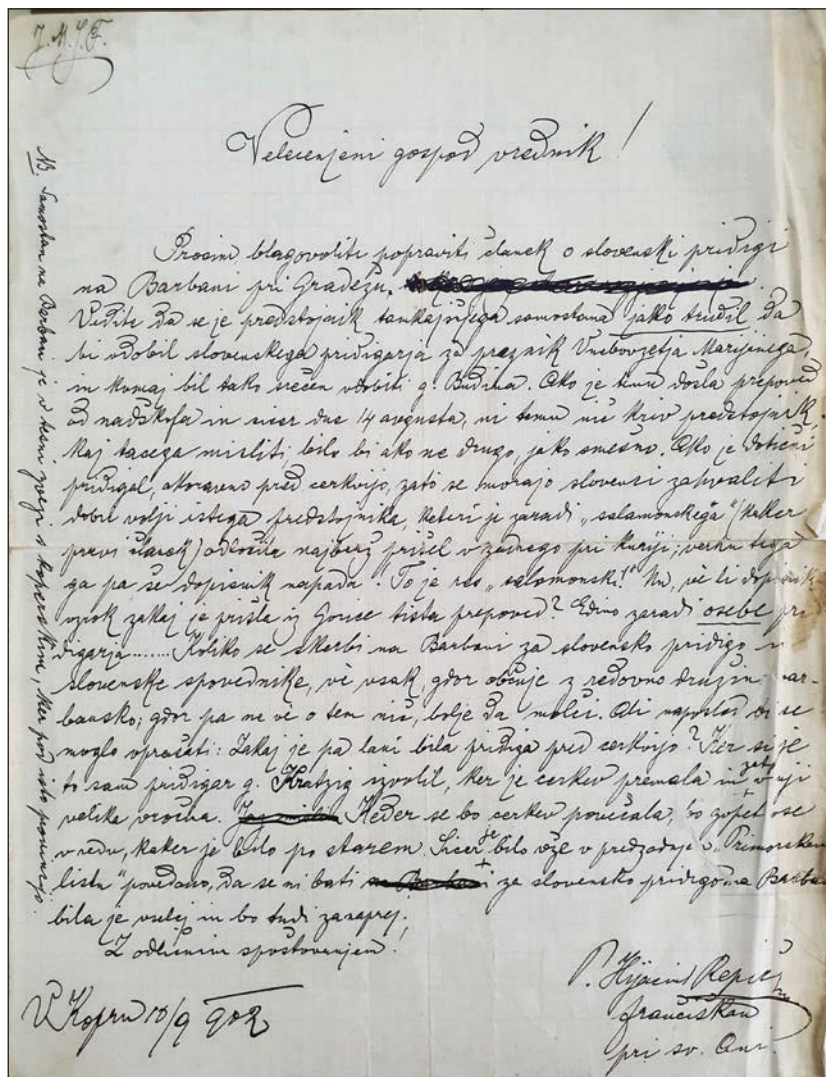 J. M. J. F.
Velecenjeni gospod vrednik!
Prosim, blagovolite popraviti članek o slovenski pridigi
na Barbani pri Gradežu.
Vedite da se je predstojnik tamkajšnjega samostana jako trudil da
bi vdobil slovenskega pridigarja za praznik Vnebovzetja Marijinega,
in komaj bil tako srečen vdobiti g. Budina. Ako je temu došla prepoved
od nadškofa in sicer dne 14 avgusta, ni temu nič kriv predstojnik,
kaj tacega misliti, bilo bi ako ne drugo, jako smešno. Ako je dotični
pridigal, akoravno pred cerkvijo, zato se morajo slovenci zahvaliti
dobri volji istega predstojnika, kateri je zaradi „salamonskega" (kakor
pravi članek) odločila najberž prišel v zadrego pri kuriji; verhu tega
ga pa še dopisnik napada. To je res „salomonski!" Nu, vé li dopisnik
vzrok zakaj je prišla iz Gorice tista prepoved? Edino zaradi osebe pri
digarja....... Koliko se skerbi na Barbani za slovensko pridigo in
slovenske spovednike, vé vsak, gdor občuje z redovno družino bar-
bansko; gdor pa ne vé o tem nič, bolje da molči. Ali naposled bi se
moglo vprašati: Zakaj je pa lani bila pridiga pred cerkvijo? Ker si je
to sam pridigar g. Kratzig izvolil, ker je cerkev premala in zato v nji
velika vročina. Keder se bo cerkev povečala, bo zopet vse
v redu, kaker je bilo po starem. Sicer je bilo vže v predzadnje v „Primorskem
listu" povedano, da se ni bati za slovensko pridigo na Barbani
bila je vselej in bo tudi zanaprej.
Z odličnim spoštovanjem!
V Kopru 10/9 902
P. Hijacint Repič
frančiškan
pri sv. Ani.
NB. Samostan na Barbani je v tesni zvezi s koperskim, ker pod isto provincijo.